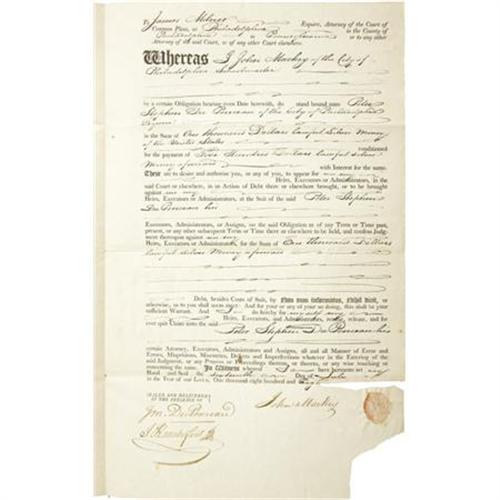 To James Milnor Esquire, Attorney of the Court of
Common Pleas, at Philadelphia in the County
of Philadelphia in Pennsylvania or to any other
Attorney of the said Court, or of any other Court elsewhere.
Whereas I John Mackey of the City of
Philadelphia Schoolmaster
by a certain Obligation bearing even Date herewith, do stand bound unto Peter
Stephen Du Ponceau of the City of Philadelphia
Esquire
in the Sum of One thousand Dollars lawful Silver Money
of the United States conditioned
for the payment of Five Hundred Dollars lawful silver
Money aforesaid with Interest for the same
These are to desire and authorize you, or any of you, to appear for me my
Heirs, Executors or Administrators, in the
said Court or elsewhere, in an Action of Debt there or elsewhere brought, or to be brought
against me my
Heirs, Executors or Administrators, at the Suit of the said Peter Stephen
Du Ponceau his
Executors, Administrators, or Assigns, on the said Obligation as of any Term or Time past,
present, or any other subsequent Term or Time there or elsewhere to be held, and confess Judg-
ment thereupon against me my
Heirs, Executors or Administrators, for the Sum of One thousand Dollars
lawful silver Money aforesaid
Debt, besides Costs of Suit, by Non sum informatus, Nihil dicit, or
otherwise, as to you shall seem meet: And for your or any of your so doing, this shall be your
sufficient Warrant. And I do hereby for myself my
Heirs, Executors, and Administrators remise, release, and for
ever quit Claim unto the said
Peter Stephen Du Ponceau his
certain Attorney, Executors, Administrators and Assigns, all and all Manner of Error and
Errors, Misprisions, Misentries, Defects and Imperfections whatever in the Entering of the
said Judgment, or any Process or Proceedings thereon, or thereto, or any wise touching or
concerning the same. In Witness whereof I have hereunto set my
Hand and Seal the Day of July
in the Year of our Lord, One thousand eight hundred and
SEALED AND DELIVERED
IN THE PRESENCE OF
John Mackey
Jno. Du Ponceau